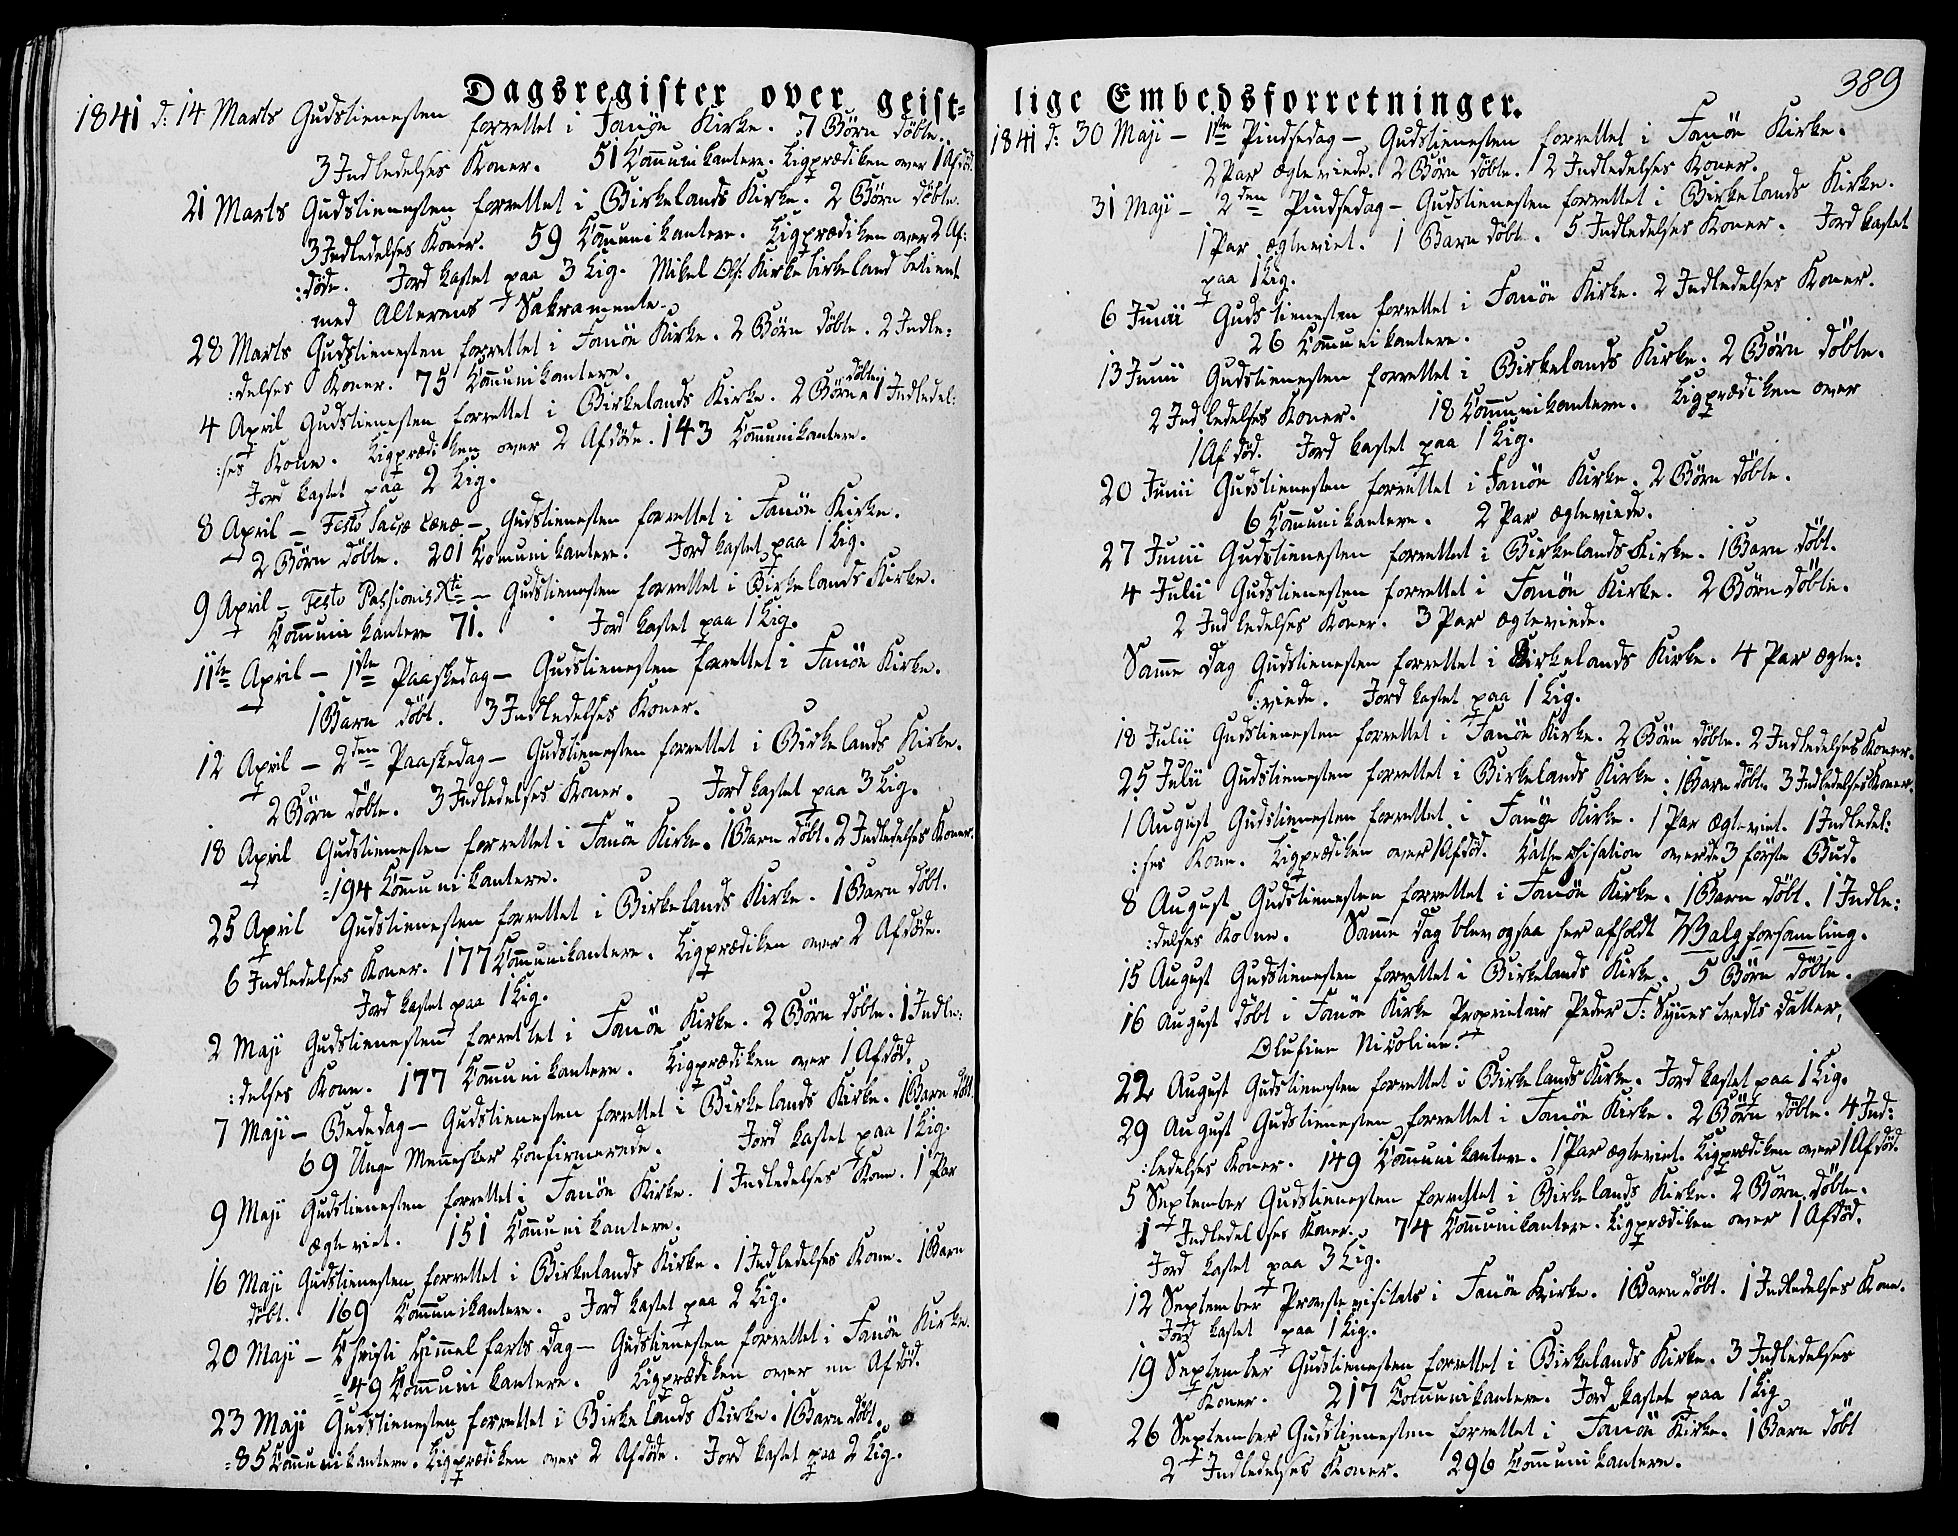 Dagsregister over geist-
1841 d: 14 Marts Gudstienesten forrettet i Fanöe Kirke. 7 Börn döbte.
3 Indledelses Koner. 51 Communikantere. Ligprædiken over 1 Afdöd.
21 Marts Gudstienesten forrettet i Birkelands Kirke. 2 Börn döbte.
3 Indledelses Koner. 59 Communikantere. Ligprædiken over 2 Af:
:döde. Jord kastet paa 3 Lig. Mikel Ols: Kirkebirkeland betient
med Alterens Sakramente.
28 Marts Gudstienesten forrettet i Fanöe Kirke. 2 Börn döbte. 2 Indle:
:delses Koner. 75 Communikantere.
4 April Gudstienesten forrettet i Birkelands Kirke. 2 Börn döbte 1 Indledel:
:ses Kone. Ligprædiken over 2 Afdöde. 143 Communikantere.
Jord kastet paa 2 Lig.
8 April – Festo Sacræ Cænæ –, Gudstienesten forrettet i Fanöe Kirke.
2 Börn döbte. 201 Comunikantere. Jord kastet paa 1 Lig.
9 April – Festo Passionis Xti – Gudstienesten forrettet i Birkelands Kirke.
Communikantere 71. Jord kastet paa 1 Lig.
11te April – 1ste Paaskedag – Gudstienesten forrettet i Fanöe Kirke.
1 Barn döbt. 3 Indledelses Koner.
12 April – 2den Paaskedag – Gudstienesten forrettet i Birkelands Kirke.
2 Börn döbte. 3 Indledelses Koner. Jord kastet paa 3 Lig.
18 April Gudstienesten forrettet i Fanöe Kirke. 1 Barn döbt. 2 Indledelses Koner.
=194 Communikantere.
25 April Gudstienesten forrettet i Birkelands Kirke. 1 Barn döbt.
6 Indledelses Koner. 177 Communikantere. Ligprædiken over 2 Afdöde.
Jord kastet paa 1 Lig.
2 Maji Gudstienesten forrettet i Fanöe Kirke. 2 Börn döbte. 1 Indle:
:delses Kone. 177 Communikantere. Ligprædiken over 1 Afdöd.
7 Maji – Bededag – Gudstienesten forrettet i Birkelands Kirke. 1 Barn döbt.
69 Unge Mennesker Confirmerede. Jord kastet paa 1 Lig.
9 Maji Gudstienesten forrettet i Fanöe Kirke. 1 Indledelses Kone. 1 Par
ægteviet. 151 Communikantere.
16 Maji Gudstienesten forrettet i Birkelands Kirke. 1 Indledelses Kone. 1 Barn
döbt. 169 Communikantere. Jord kastet paa 2 Lig.
20 Maji – Christi Himmelfarts Dag – Gudstienesten forrettet i Fanöe Kirke.
=49 Communikantere. Ligprædiken over en Afdöd.
23 Maji Gudstienesten forrettet i Birkelands Kirke. 1 Barn döbt.
=85 Communikantere. Ligprædiken over 2 Afdöde. Jord kastet paa 2 Lig.
389
lige Embedsforretninger.
1841 d: 30 Maji – 1ste Pindsedag – Gudstienesten forrettet i Fanöe Kirke.
2 Par ægteviede. 2 Börn döbte. 2 Indledelses Koner.
31 Maji – 2den Pindsedag – Gudstienesten forrettet i Birkelands Kirke.
1 Par ægteviet. 1 Barn döbt. 5 Indledelses Koner. Jord kastet
paa 1 Lig.
6 Junii Gudstienesten forrettet i Fanöe Kirke. 2 Indledelses Koner.
26 Communikantere.
13 Junii Gudstienesten forrettet i Birkelands Kirke. 2 Börn döbte.
2 Indledelses Koner. 18 Communikantere. Ligprædiken over
1 Afdöd. Jord kastet paa 1 Lig.
20 Junii Gudstienesten forrettet i Fanöe Kirke. 2 Börn döbte.
6 Communikantere. 2 Par ægteviede.
27 Junii Gudstienesten forrettet i Birkelands Kirke. 1 Barn döbt.
4 Julii Gudstienesten forrettet i Fanöe Kirke. 2 Börn döbte.
2 Indledelses Koner. 3 Par ægteviede.
Samme Dag Gudstienesten forrettet i Birkelands Kirke. 4 Par ægte:
:viede. Jord kastet paa 1 Lig.
18 Julii Gudstienesten forrettet i Fanöe Kirke. 2 Börn döbte. 2 Indledelses Koner.
25 Julii Gudstienesten forrettet i Birkelands Kirke. 1 Barn döbt. 3 Indledelses Koner.
1 August Gudstienesten forrettet i Fanöe Kirke. 1 Par ægteviet. 1 Indledel:
:ses Kone. Ligprædiken over 1 Afdöd. Kathechisation over de 3 förste Bud.
8 August Gudstienesten forrettet i Fanöe Kirke. 1 Barn döbt. 1 Indle:
:delses Kone. Samme Dag blev ogsaa her afholdt Walgforsamling.
15 August Gudstienesten forrettet i Birkelands Kirke. 5 Börn döbte.
16 August döbt i Fanöe Kirke Proprietair Peder F: Synnestvedts Datter,
Olufine Nicoline.
22 August Gudstienesten forrettet i Birkelands Kirke. Jord kastet paa 1 Lig.
29 August Gudstienesten forrettet i Fanöe Kirke. 2 Börn döbte. 4 Ind:
:ledelses Koner. 149 Communikantere. 1 Par ægteviet. Ligprædiken over 1 Afdöd.
5 September Gudstienesten forrettet i Birkelands Kirke. 2 Börn döbte.
1 Indledelses Koner. 74 Communikantere. Ligprædiken over 1 Afdöd.
Jord kastet paa 3 Lig.
12 September Provstevisitats i Fanöe Kirke. 1 Barn döbt. 1 Indledelses Kone.
Jord kastet paa 1 Lig.
19 September Gudstienesten forrettet i Birkelands Kirke. 3 Indledelses
Koner. 217 Communikantere. Jord kastet paa 1 Lig
26 September Gudstienesten forrettet i Fanöe Kirke. 1 Barn döbt
2 Indledelses Koner. 296 Communikantere.